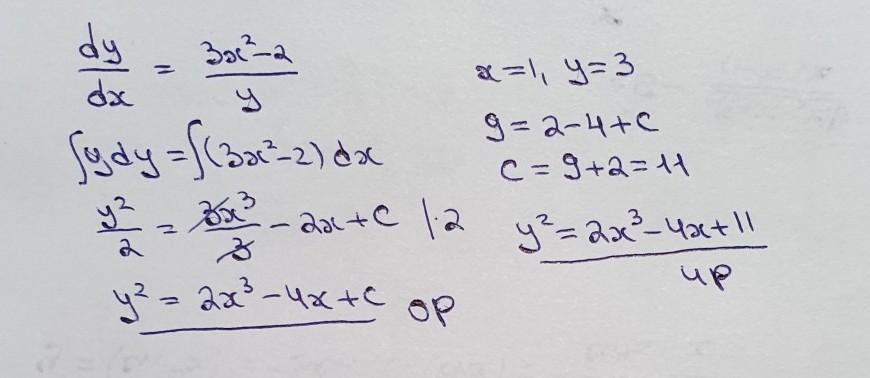 dy/dx = (3x²-2)/y
∫ydy = ∫(3x²-2)dx
y²/2 = 3x³/3 - 2x + C |·2
y² = 2x³ - 4x + C ОР
x=1, y=3
9 = 2-4+C
C = 9+2 = 11
y² = 2x³ - 4x + 11
ЧР